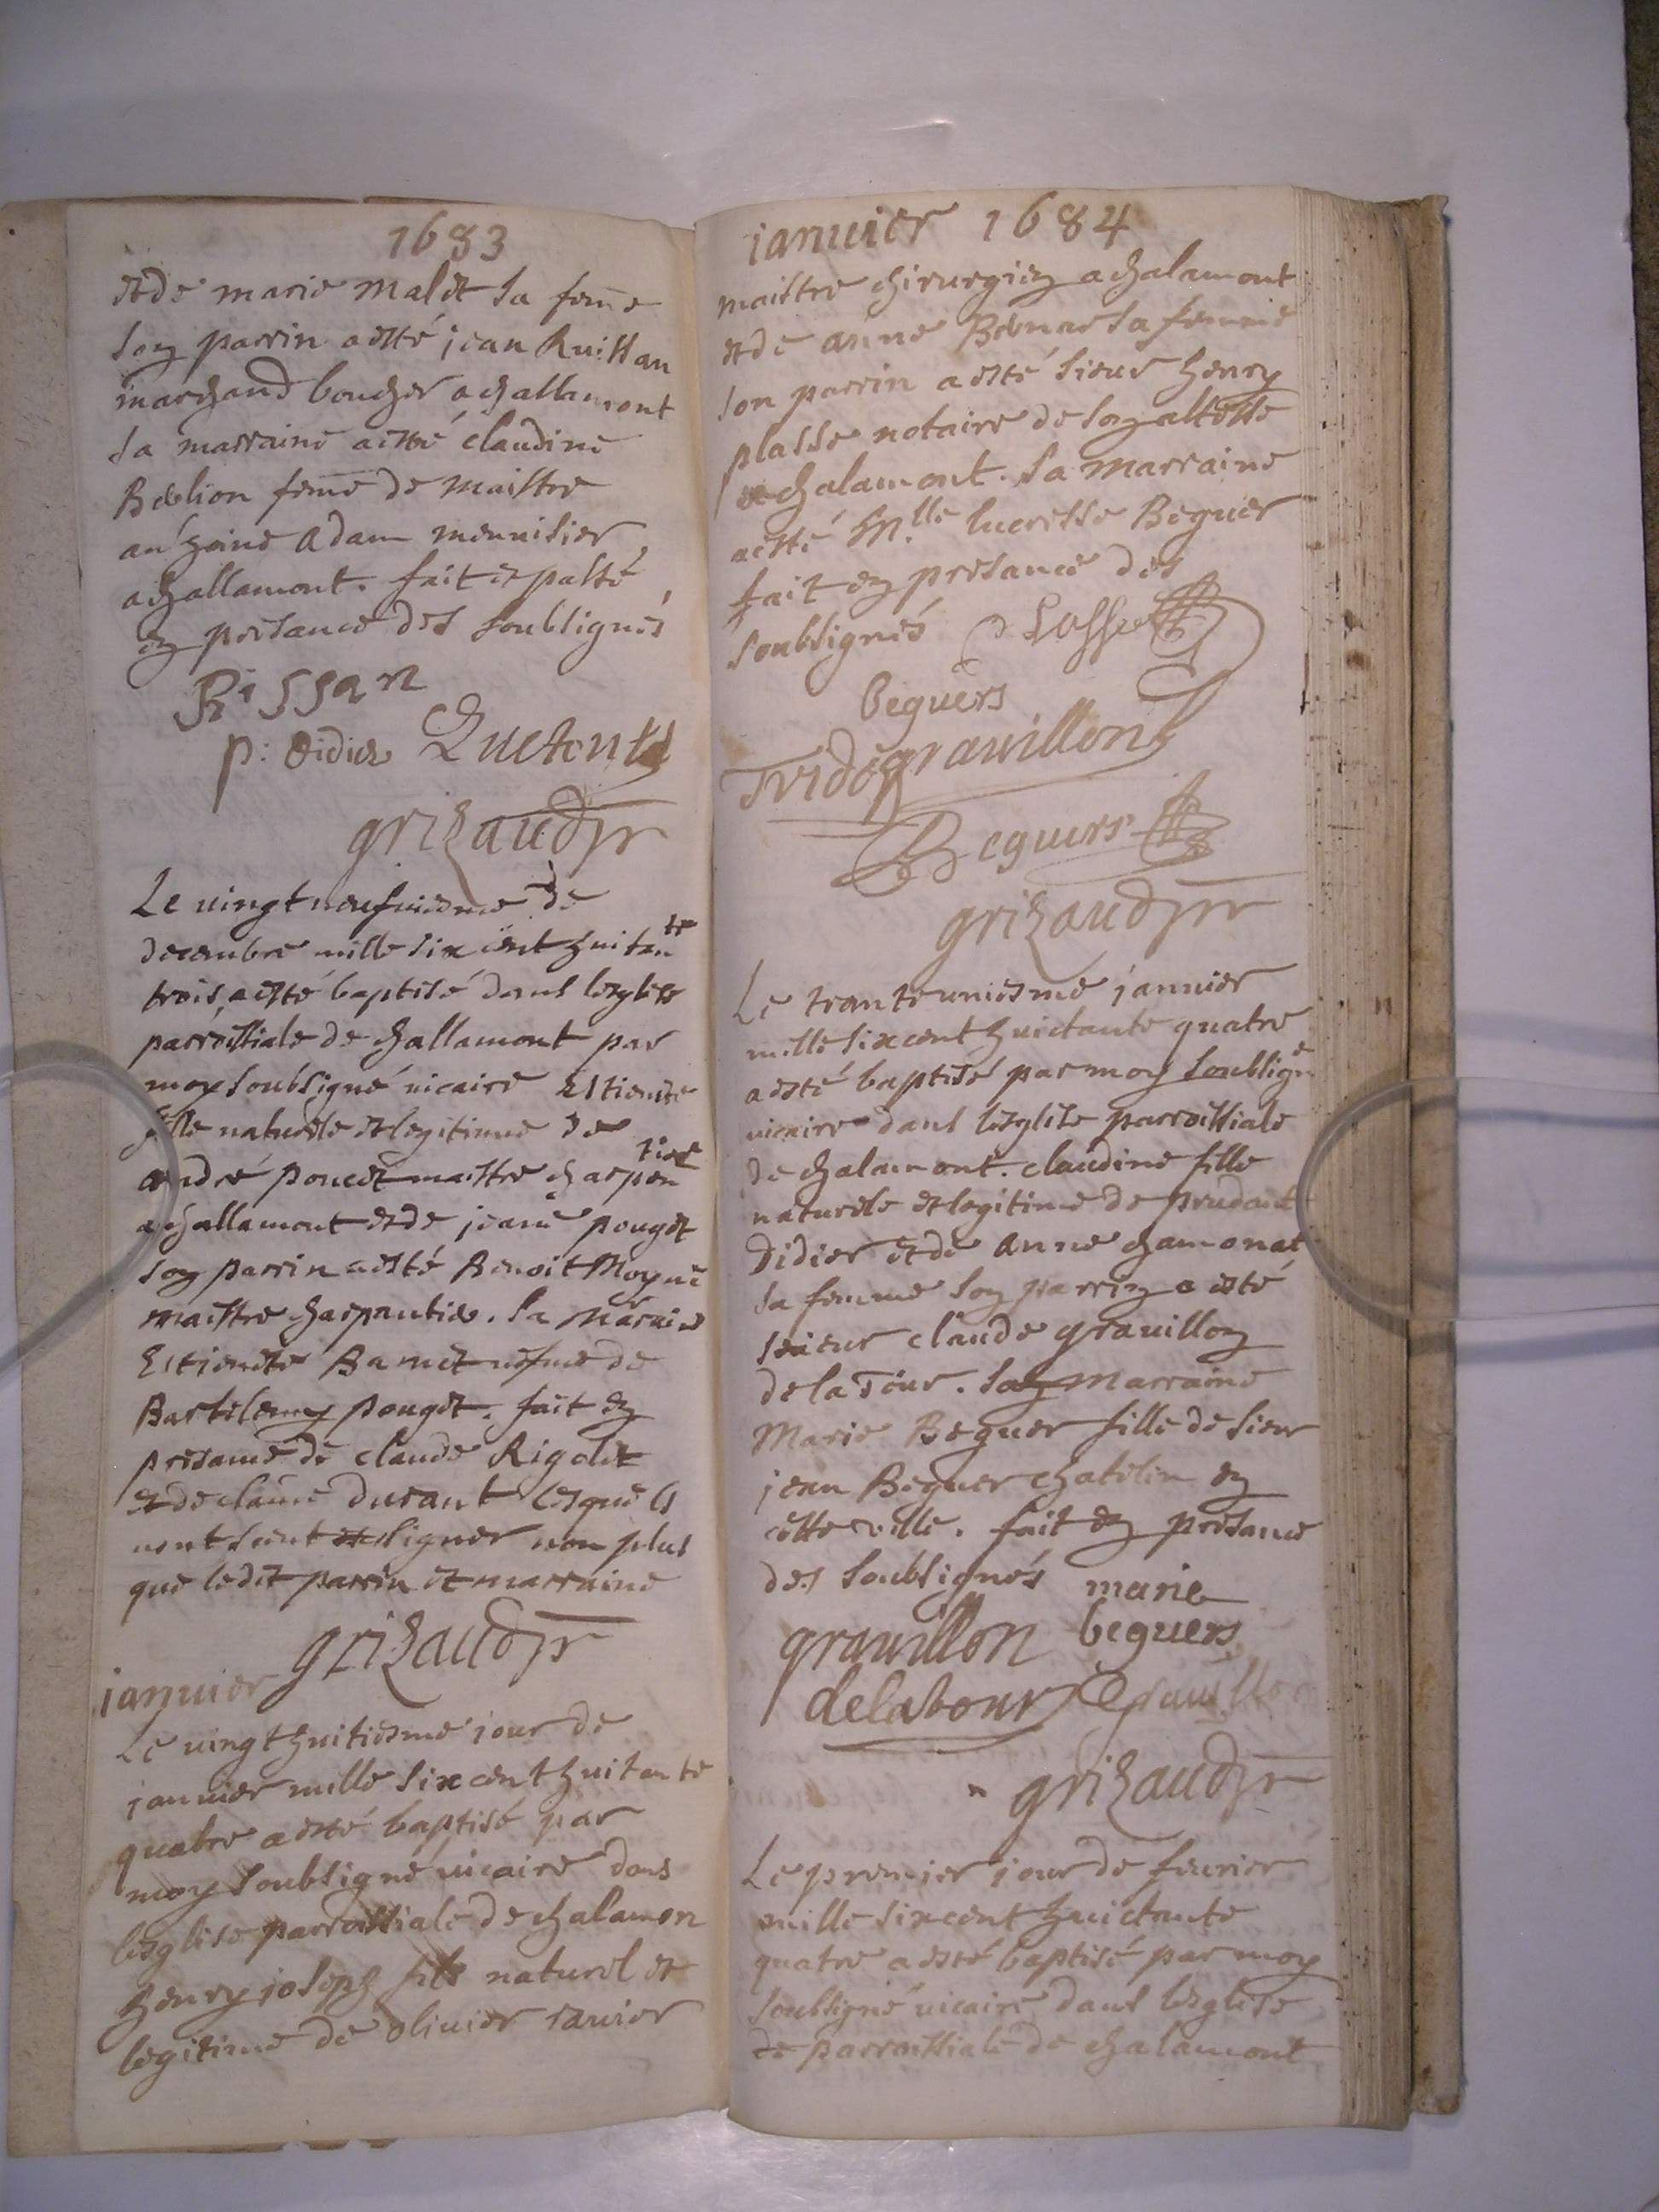 1683
et de marie malet sa feme
son parrin a esté jean Ruissan
marchand boucher a challamont
sa marraine a esté claudine
Bellion feme de maistre
anthoine Adam menuisier
a challamont. fait et passé
en presance des soubsignés
Rissan
p: didier
grizaud ptr
Le vingt neufuiesme de
decembre mille six cent huitante
trois, a esté baptisé dans lesglise
parroissiale de challamont par
moy soubsigné vicaire Estiennete
fille naturelle et legitime de
andré poncet maistre charpentier
a challamont et de jeane pouget
son parrin a esté Benoit Moyne
maistre charpantier. sa maraine
Estienete Barnet vefue de
Bartelemy pouget. fait en
presance de claude Rigolet
et de claude Durant lesquels
nont sceut signer non plus
que ledit parrin et marraine
grizaud ptr
ianuier
Le vingt huitiesme jour de
januier mille six cent huitante
quatre a esté baptisé par
moy soubsigné vicaire dans
lesglise parroissiale de chalamon
henry joseph fils naturel et
legitime de olivier ravier
ianuier 1684
maistre chirurgien a chalamont
et de anne sa femme
son parrin a esté sieur henry
plasse notaire de son altesse
a chalamont. sa marraine
a esté M.lle lucresse Beguer
fait en presance des
soubsignés Plasse
beguers
grauillon
Beguers
grizaud ptr
Le trante uniesme januier
mille six cent huictante quatre
a esté baptisé par moy soubsigné
vicaire dans lesglise parroissiale
de chalamont. claudine fille
naturele et legitime de prudant
Didier et de anne chamonat
sa femme son parrin a esté
sieur claude grauillon
de la Tour. sa marraine
Marie Beguer fille de sieur
jean Beguer chatelin en
cette ville. fait en presance
des soubsignés marie
grauillon beguers
delatour
grizaud ptr
Le premier jour de feurier
mille six cent huictante
quatre a esté baptisé par moy
soubsigné vicaire dans lesglise
de parroissiale de chalamont